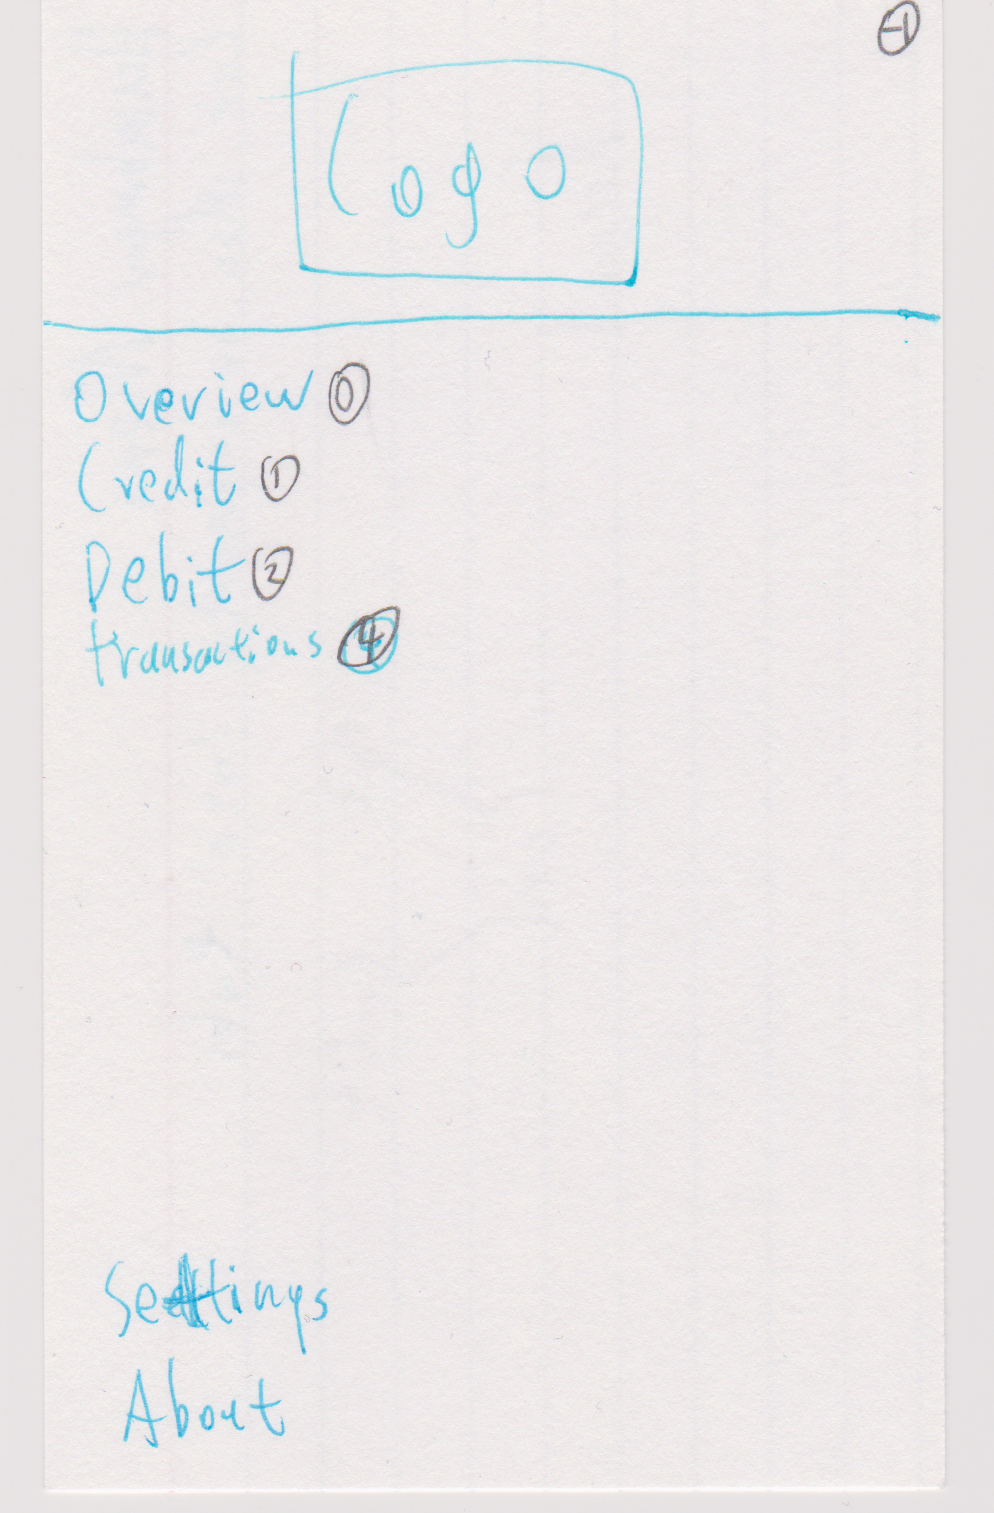 -1
Logo
Overview 0
Credit 1
Debit 2
transactions 4
Settings
About